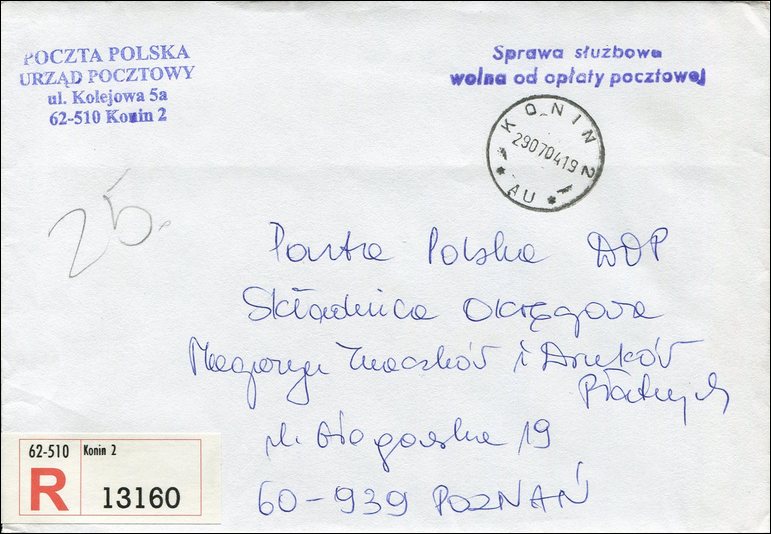 POCZTA POLSKA
URZĄD POCZTOWY
ul. Kolejowa 5a
62-510 Konin 2
Sprawa służbowa
wolna od opłaty pocztowej
KONIN 2
29070419
* AU *
25.
Poczta Polska DOP
Składnica Okręgowa
Magazyn Znaczków i Druków
Płatnych
ul. Głogowska 19
60-939 POZNAŃ
62-510 Konin 2
R 13160